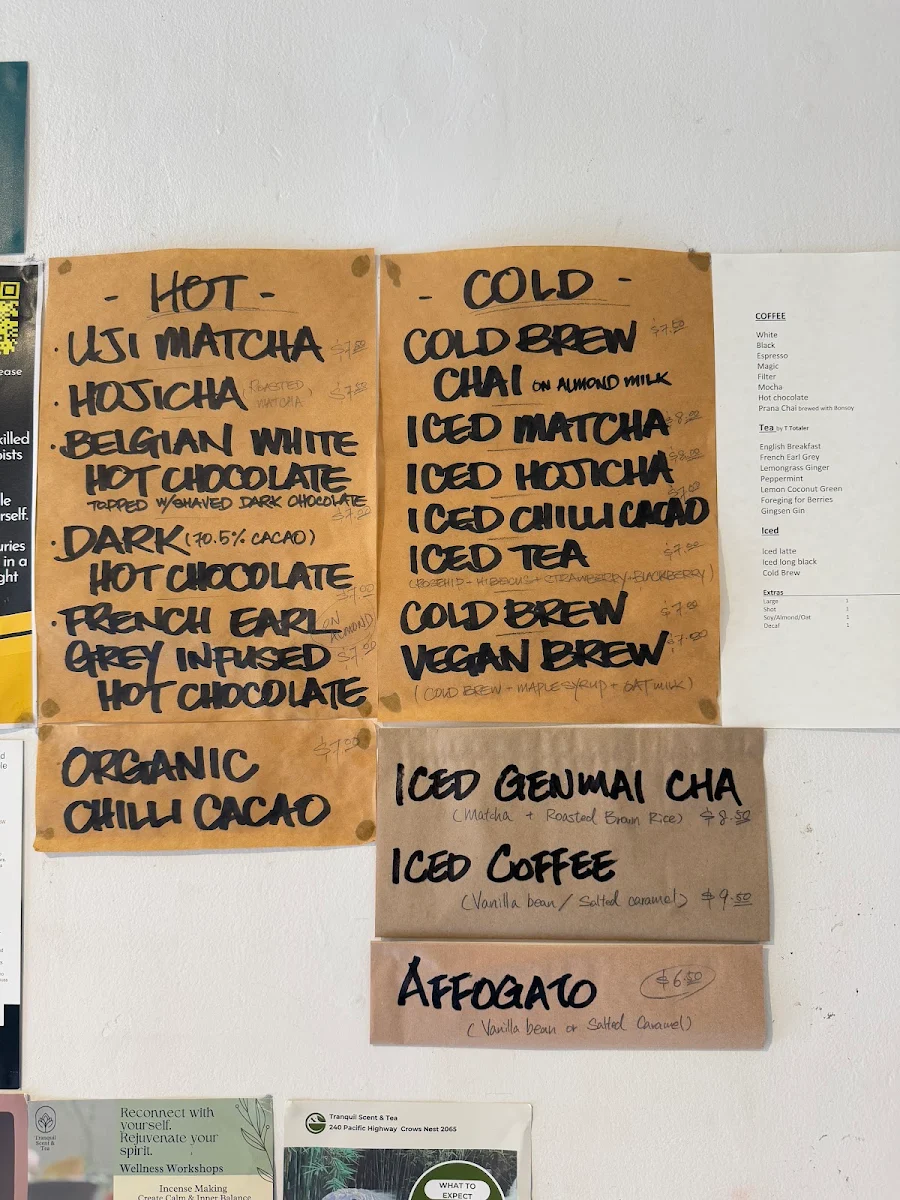 - HOT -
· UJI MATCHA $7.00
· HOJICHA (ROASTED MATCHA) $7.00
· BELGIAN WHITE
HOT CHOCOLATE
TOPPED W/SHAVED DARK CHOCOLATE
$7.00
· DARK (70.5% CACAO)
HOT CHOCOLATE
$7.00
· FRENCH EARL ON ALMOND
GREY INFUSED $7.00
HOT CHOCOLATE
ORGANIC $7.00
CHILLI CACAO
- COLD -
COLD BREW $7.50
CHAI ON ALMOND MILK
ICED MATCHA $8.00
ICED HOJICHA $8.00
ICED CHILLI CACAO
ICED TEA
(ROSEHIP + HIBICUS + STRAWBERRY + BLACKBERRY)
COLD BREW $7.00
VEGAN BREW
(COLD BREW + MAPLE SYRUP + OAT MILK)
ICED GENMAI CHA
(Matcha + Roasted Brown Rice) $8.50
ICED COFFEE
(Vanilla bean / Salted caramel) $9.50
AFFOGATO $6.50
(Vanilla bean or Salted Caramel)
COFFEE
White
Black
Espresso
Magic
Filter
Mocha
Hot chocolate
Prana Chai brewed with Bonsoy
Tea by T Totaler
English Breakfast
French Earl Grey
Lemongrass Ginger
Peppermint
Lemon Coconut Green
Foreging for Berries
Gingsen Gin
Iced
Iced latte
Iced long black
Cold Brew
Extras
Large 1
Shot 1
Soy/Almond/Oat 1
Decaf 1
Tranquil
Scent &
Tea
Reconnect with
yourself.
Rejuvenate your
spirit.
Wellness Workshops
Incense Making
Create Calm & Inner Balance
Tranquil Scent & Tea
240 Pacific Highway Crows Nest 2065
WHAT TO
EXPECT